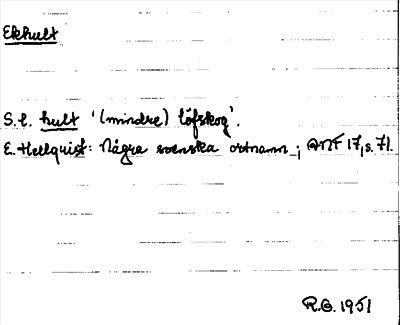 Ekhult
S.l. hult '(mindre) löfskog'.
E. Hellquist: Några svenska ortnamn; ANF 17, s. 71.
R.G. 1951